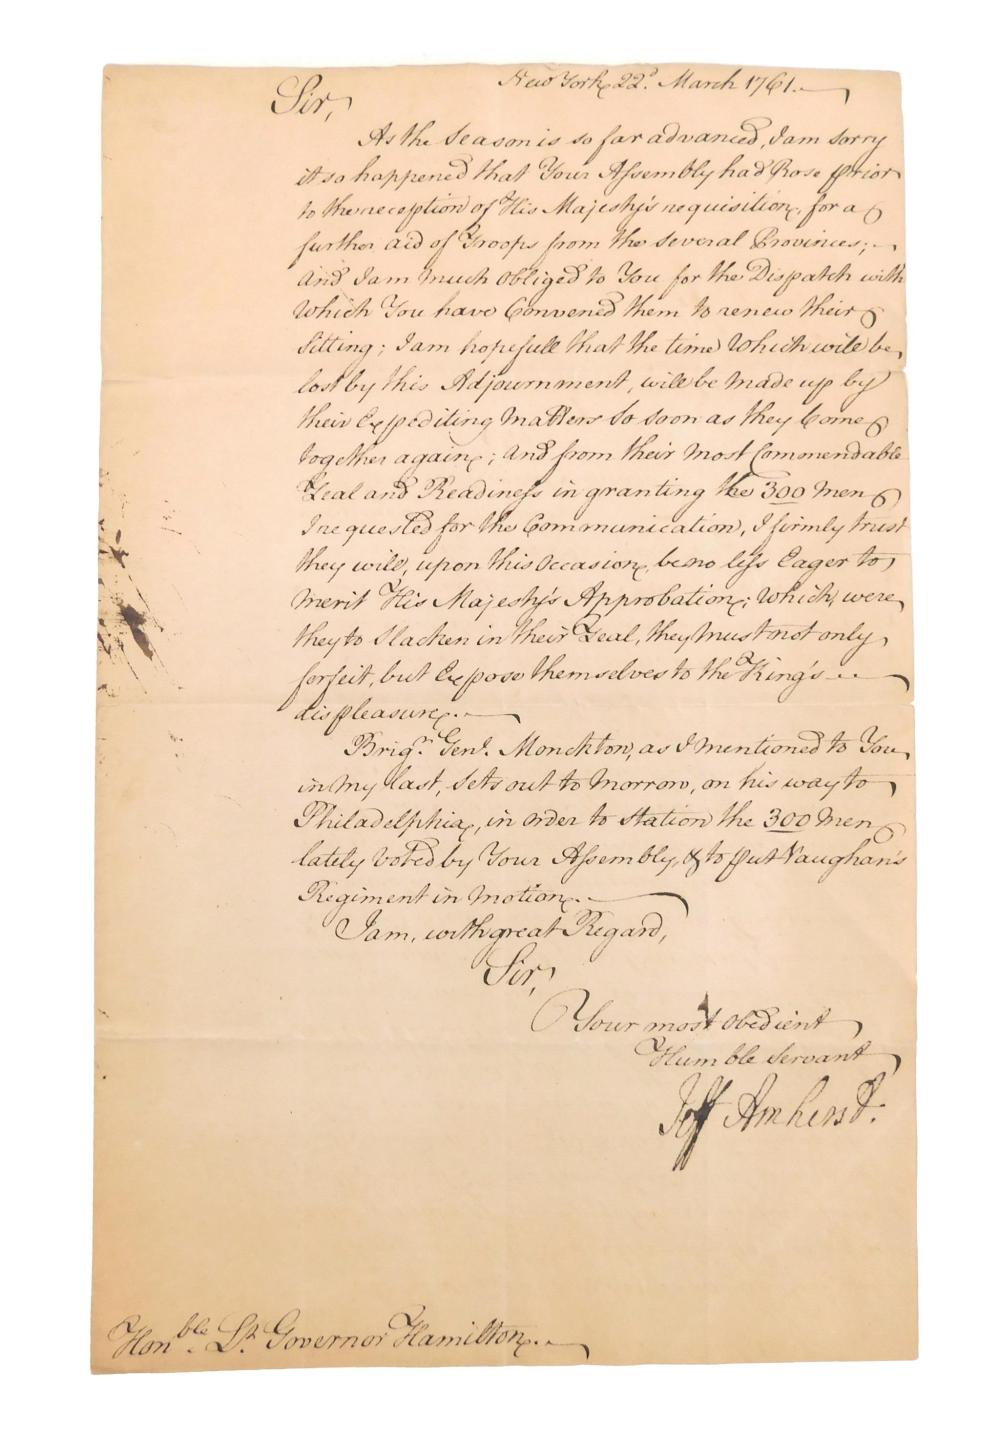 New York, 22d. March 1761.
Sir,
As the Season is so far advanced, I am sorry
it so happened that Your Assembly had Rose prior
to the reception of His Majesty's requisition, for a
further aid of Troops from the several Provinces;
and I am much obliged to You for the Dispatch with
which You have Convened them to renew their
Sitting; I am hopefull that the time which will be
lost by this Adjournment, will be made up by
their Expediting matters so soon as they Come
together again; and from their most Commendable
Zeal and Readiness in granting the 300 Men
I requested for the Communication, I firmly trust
they will, upon this occasion, be no less Eager to
merit His Majesty's Approbation; which, were
they to Slacken in their Zeal, they must not only
forfeit, but Expose themselves to the King's
displeasure.
Brigr. Genl. Monckton, as I mentioned to You
in my last, Sets out to morrow, on his way to
Philadelphia, in order to station the 300 Men
lately voted by Your Assembly, & to put Vaughan's
Regiment in motion.
I am, with great Regard,
Sir,
Your most obedient
Humble Servant
Jeff Amherst.
Honble. Lt. Governor Hamilton.